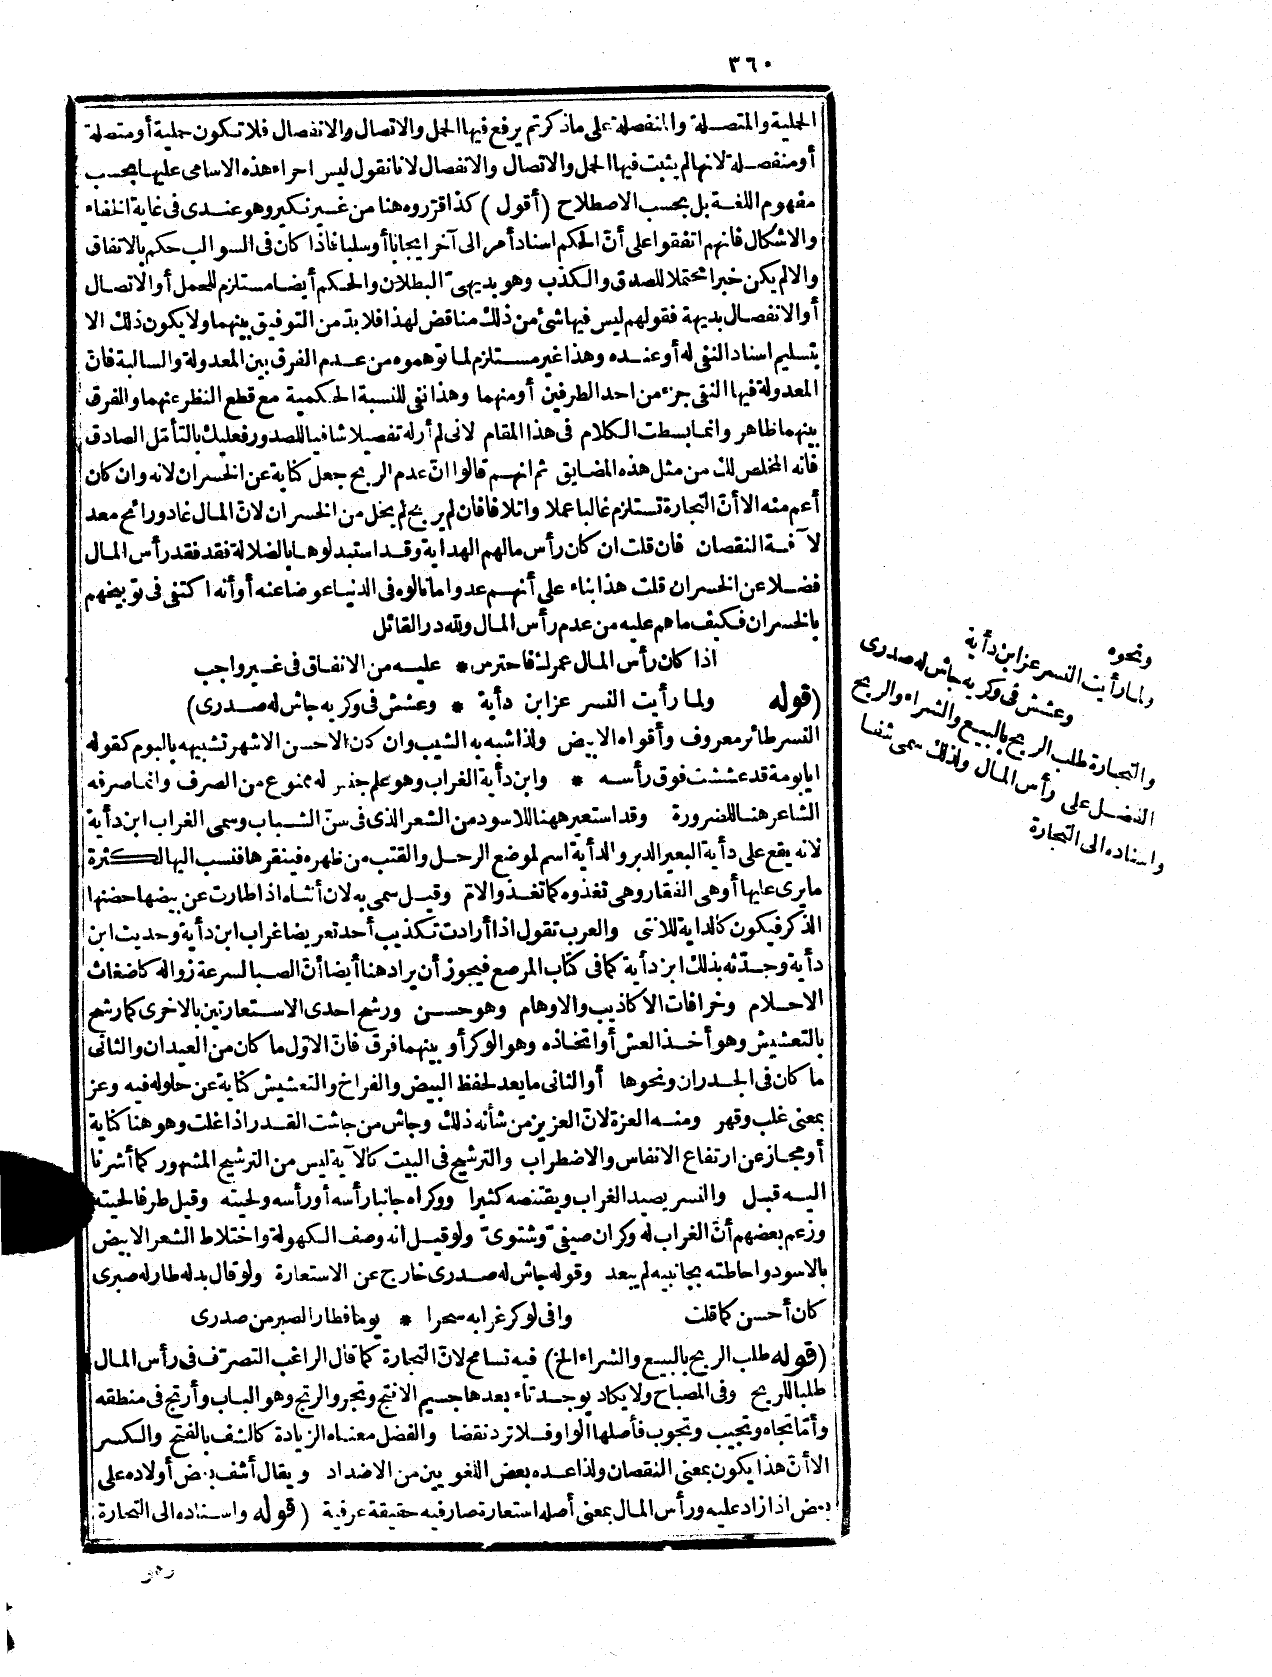 ٣٦٠
الحملية والمتصلة والمنفصلة على ماذكرتم يرفع فيها الحمل والاتصال والانفصال فلا تكون حملية أو متصلة
أو منفصلة لانها لم يثبت فيها الحمل والاتصال والانفصال لانا نقول ليس اجراء هذه الاسامى عليها بحسب
مفهوم اللغة بل بحسب الاصطلاح (أقول) كذا قرّروه هنا من غير نكير وهو عندى فى غاية الخفاء
والاشكال فانهم اتفقوا على أنّ الحكم اسناد أمر الى آخر ايجابا أو سلبا فاذا كان فى السوالب حكم بالاتفاق
والا لم يكن خبرا محتملا للصدق والكذب وهو بديهىّ البطلان والحكم أيضا مستلزم للحمل أو الاتصال
أو الانفصال بديهة فقولهم ليس فيها شئ من ذلك مناقض لهذا فلا بدّ من التوفيق بينهما ولا يكون ذلك الا
بتسليم اسناد النفى له أو عنده وهذا غير مستلزم لما توهموه من عدم الفرق بين المعدولة والسالبة فانّ
المعدولة فيها النفى جزء من احد الطرفين أو منهما وهذا نفى للنسبة الحكمية مع قطع النظر عنهما والفرق
بينهما ظاهر وانما بسطت الكلام فى هذا المقام لانى لم أر له تفصيلا شافيا للصدور فعليك بالتأمّل الصادق
فانه المخلص لك من مثل هذه المضايق ثم انهم قالوا انّ عدم الربح جعل كناية عن الخسران لانه وان كان
أعم منه الا أنّ التجارة تستلزم غالبا عملا واتلافا فان لم يربح لم يخل من الخسران لانّ المال غاد ورائح معد
لآفة النقصان فان قلت ان كان رأس مالهم الهداية وقد استبدلوها بالضلالة فقد فقد رأس المال
فضلا عن الخسران قلت هذا بناء على أنهم عدوا ما نالوه فى الدنيا عوضا عنه أو أنه اكتفى فى توبيخهم
بالخسران فكيف ما هم عليه من عدم رأس المال ولله در القائل
اذا كان رأس المال عمرك فاحترس * عليه من الانفاق فى غير واجب
(قوله ولما رأيت النسر عز ابن دأية * وعشش فى وكريه جاش له صدرى)
النسر طائر معروف وأقواه الابيض ولذا شبه به الشيب وان كان الاحسن الاشهر تشبيهه بالبوم كقوله
ايابومة قد عششت فوق رأسه * وابن دأية الغراب وهو علم جنس له ممنوع من الصرف وانما صرفه
الشاعر هنا للضرورة وقد استعير ههنا للاسود من الشعر الذى فى سنّ الشباب وسمى الغراب ابن دأية
لانه يقع على دأية البعير الدبر والدأية اسم لموضع الرحل والقتب من ظهره فينقرها فنسب اليها لكثرة
ما يرى عليها أو هى الفقار وهى تغذوه كما تغذو الامّ وقيل سمى به لان أنثاه اذا طارت عن بيضها حضنها
الذكر فيكون كالداية للانثى والعرب تقول اذا أرادت تكذيب أحد تعريضا غراب ابن دأية وحديث ابن
دأية وحدّثه بذلك ابن دأية كما فى كتاب المرصع فيجوز أن يراد هنا أيضا أنّ الصبا لسرعة زواله كاضغاث
الاحلام وخرافات الاكاذيب والاوهام وهو حسن ورشح احدى الاستعارتين بالاخرى كما رشح
بالتعشيش وهو أخذ العش أو اتخاذه وهو الوكر أو بينهما فرق فانّ الاوّل ما كان من العيدان والثانى
ما كان فى الجدران ونحوها أو الثانى ما يعد لحفظ البيض والفراخ والتعشيش كناية عن حلوله فيه وعز
بمعنى غلب وقهر ومنه العزة لانّ العزيز من شأنه ذلك وجاش من جاشت القدر اذا غلت وهو هنا كناية
أو مجاز عن ارتفاع الانفاس والاضطراب والترشيح فى البيت كالآية ليس من الترشيح المشهور كما أشرنا
اليه قبل والنسر يصيد الغراب ويقتنصه كثيرا ووكراه جانبا رأسه أو رأسه ولحيته وقيل طرفا لحيته
وزعم بعضهم أنّ الغراب له وكران صيفىّ وشتوىّ ولو قيل انه وصف الكهولة واختلاط الشعر الابيض
بالاسود واحاطته بجانبيه لم يبعد وقوله جاش له صدرى خارج عن الاستعارة ولو قال بدله طار له صبرى
كان أحسن كما قلت وافى لوكر غرابه سحرا * يوما فطار الصبر من صدرى
(قوله طلب الربح بالبيع والشراء الخ) فيه تسامح لانّ التجارة كما قال الراغب التصرّف فى رأس المال
طلبا للربح وفى المصباح ولا يكاد يوجد تاء بعدها جيم الا نتج وتجر والرتج وهو الباب وأرتج فى منطقه
وأمّا تجاه وتجيب وتجوب فأصلها الواو فلا ترد نقضا والفضل معناه الزيادة كالشف بالفتح والكسر
الا أنّ هذا يكون بمعنى النقصان ولذا عده بعض اللغويين من الاضداد ويقال أشف بعض أولاده على
بعض اذا زاد عليه ورأس المال بمعنى أصله استعارة صار فيه حقيقة عرفية (قوله واسناده الى التجارة
ونحوه
ولما رأيت النسر عز ابن دأية
وعشش فى وكريه جاش له صدرى
والتجارة طلب الربح بالبيع والشراء والربح
الفضل على رأس المال ولذلك سمى شفا
واسناده الى التجارة
وهو